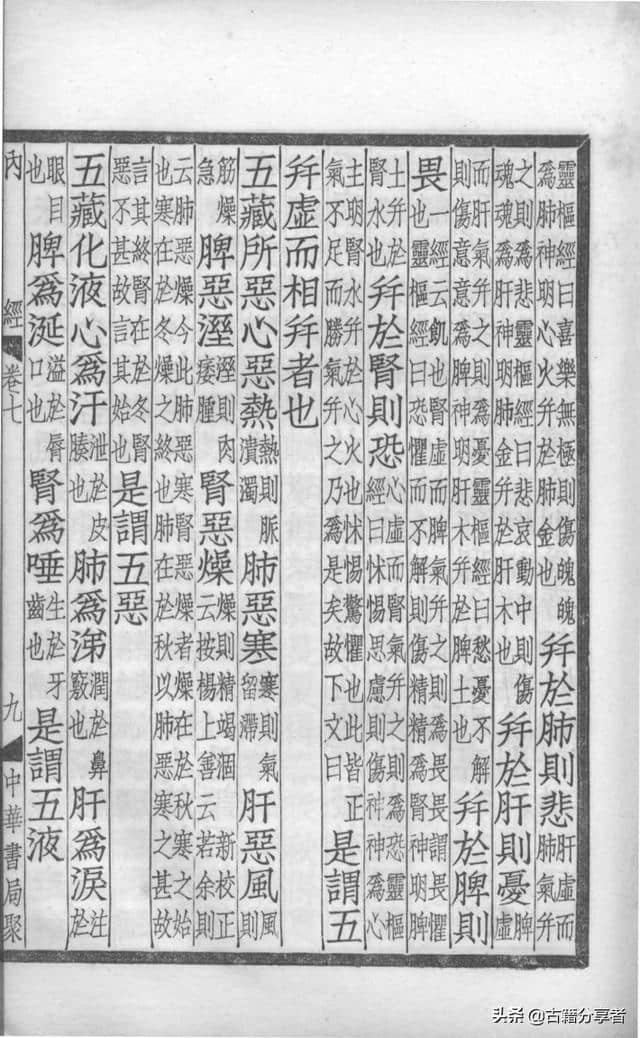 靈樞經曰喜樂無極則傷魄魄爲肺神明心火幷於肺金也幷於肺則悲肝虛而肺氣幷
之則爲悲靈樞經曰悲哀動中則傷魂魂爲肝神明肺金幷於肝木也幷於肝則憂脾虛
而肝氣幷之則爲憂靈樞經曰愁憂不解則傷意意爲脾神明肝木幷於脾土也幷於脾則
畏一經云飢也腎虛而脾氣幷之則爲畏畏謂畏懼也靈樞經曰恐懼而不解則傷精精爲腎神明脾
土幷於腎水也幷於腎則恐心虛而腎氣幷之則爲恐靈樞經曰怵惕思慮則傷神神爲心
主明腎水幷於心火也怵惕驚懼也此皆正氣不足而勝氣幷之乃爲是矣故下文曰是謂五
幷虛而相幷者也
五藏所惡心惡熱熱則脈潰濁肺惡寒寒則氣留滯肝惡風風則
筋燥急脾惡溼溼則肉痿腫腎惡燥燥則精竭涸新校正云按楊上善云若余則
云肺惡燥今此肺惡寒腎惡燥者燥在於秋寒之始也寒在於冬燥之終也肺在於秋以肺惡寒之甚故
言其終腎在於冬腎惡不甚故言其始也是謂五惡
五藏化液心爲汗泄於皮腠也肺爲涕潤於鼻竅也肝爲淚注於
眼目也脾爲涎溢於脣口也腎爲唾生於牙齒也是謂五液
內經 卷七 九 中華書局聚
头条@古籍分享者